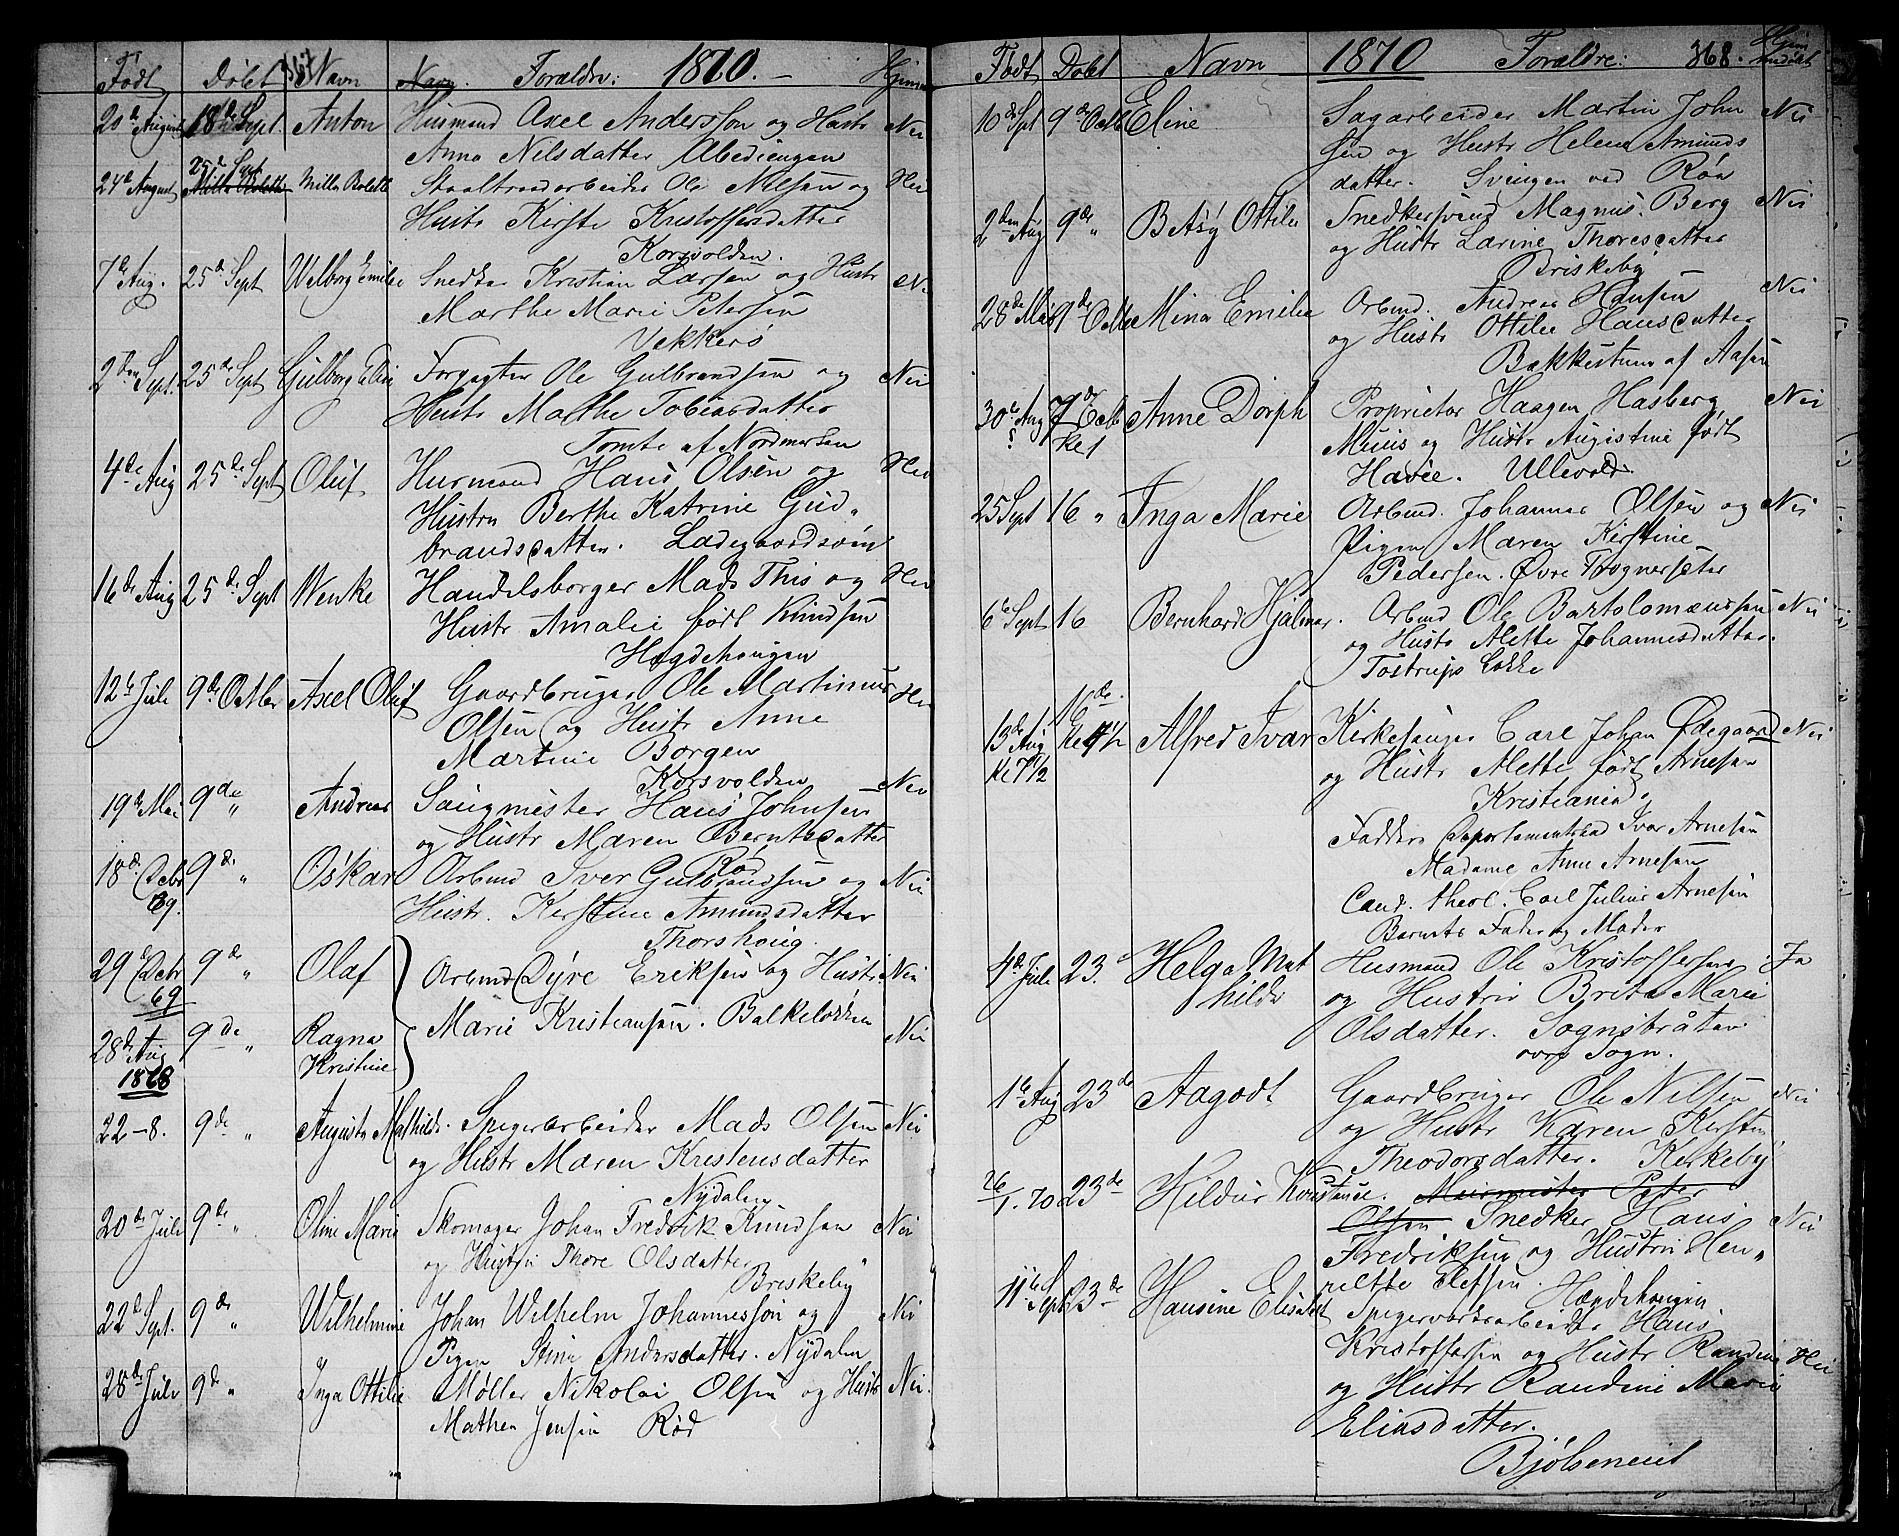 Født Døbt 367 Navn Navn. Forældre: 1870. – Hjemme
20de August 18de Sept Anton Husmand Axel Andersson og Hustr Nei
Anna Nilsdatter Abediengen
24de August 25de Sept Milla Bolette Milla Bolette Staaltraadarbeider Ole Nilsen og Nei
Hustr Kirste Kristoffersdatter
Korsvolden.
7de Aug. 25de Sept Welborg Emilie Snedker Kristian Larsen og Hustr Nei
Marthe Marie Petersen
Vekkerø
2den Sept. 25de Sept Gulborg Eline Forpagter Ole Gulbrandsen og Nei
Hustr Mathe Tobiasdatter
Tomte af Nordmarken
4de Aug 25de Sept Oluf Husmand Hans Olsen og Nei
Hustru Berthe Katrine Gud„
brandsdatter. Ladegaardsøen
16de Aug 25de Sept Wenke Handelsborger Mads This og Nei
Hustr Amalie født Knudsen
Hegdehaugen
12te Juli 9de Octbr Axel Oluf Gaardbruger Ole Martinius Nei
Olsen og Hustr Anne
Martine Borgen
Korsvolden
19de Mai 9de „ Andreas Saugmester Hans Johnsen Nei
og Hustr Maren Berntsdatter
Rød
18de Debr 69. 9de „ Oskar Arbmd Iver Gulbrandsen og Nei
Hustr. Kirstine Amundsdatter
Thorshoug.
29de Debr 69 9de „ Olaf Arbmd Dyre Eriksen og Hustr Nei
Marie Kristiansen. Balkeløkken
28de Aug 1868 9de „ Ragna Kristine Nei
22–8. 9de „ Augusta Mathilde. Spigerarbeider Mads Olsen Nei
og Hustr Maren Kristensdatter
Nydalen
20de Juli 9de „ Oline Marie Skomager Johan Fredrik Knudsen Nei
og Hustru Thore Olsdatter
Briskeby
22de Sept. 9de „ Wilhelmine Johan Wilhelm Johannesson og Nei
Pigen Stine Andersdatter. Nydalen
28de Juli 9de „ Inga Ottilie Møller Nikolai Olsen og Hustr Nei.
Mathea Jensen Rød
Født Døbt Navn 1870 Forældre: 368. Hjemmedøbt
10de Sept 9de Octb Eline Sagarbeider Martin John Nei
sen og Hustr Helene Amunds
datter. Svingen ved Røa
2den Aug 9de „ Betsy Ottilie Snedkersvend Magnus Berg Nei
og Hustr Larine Thoresdatter
Briskeby
28de Mai 9de Octbr Mina Emilie Arbmd. Andreas Hansen Nei
og Hustr Ottilie Hansdatter
Bakkestuen af Aasen
30te Aug 7de Octb Kl 1 Anne Dorph Proprietør Haagen Hasberg Nei
og Hustr Augistine født
Ullevold.
25 Sept 16 „ Inga Marie Arbmd. Johannes Olsen og Nei
Pigen Maren Kirstine
Pedersen. Øvre Tognersæter
6te Sept 16 Bernhard Hjalmar. Arbmd Ole Bartolomæussen Nei
og Hustr Alette Johannesdatter.
Tostrups Løkke
13de Aug Kl 7 1/2 16de Alfred Ivar Kirkesanger Carl Johan Ødegaard Nei
og Hustr Alette født Arnesen
Kristiania
Faddere Ivar Arnesen
Madame Anne Arnesen
Cand. theol. Carl Julius Arnesen
Barnets Fader og Moder
4de Juli 23. Helga Mat Husmand Ole Kristoffersen Ja
hilde og Hustru Brita Marie
Olsdatter. Sognsbråten
Sogn.
1te Aug 23de Aagodt Gaardbruger Ole Nilsen Nei
og Hustr Karen Kirstine
Theodorsdatter. Kirkeby
26/1. 70 23de Hildur Konstance. Murmester Peter
Olsen Snedker Hans Nei
Fredriksen og Hustru Hen„
riette Elefsen. Hægdehaugen
11te Sept 23de Hansine Elisabet Spigerværksarbeider Hans
Kristoffersen og Hustr Randine Nei
og Hustr Randine Marie
Eliasdatter.
Bjølseneiet